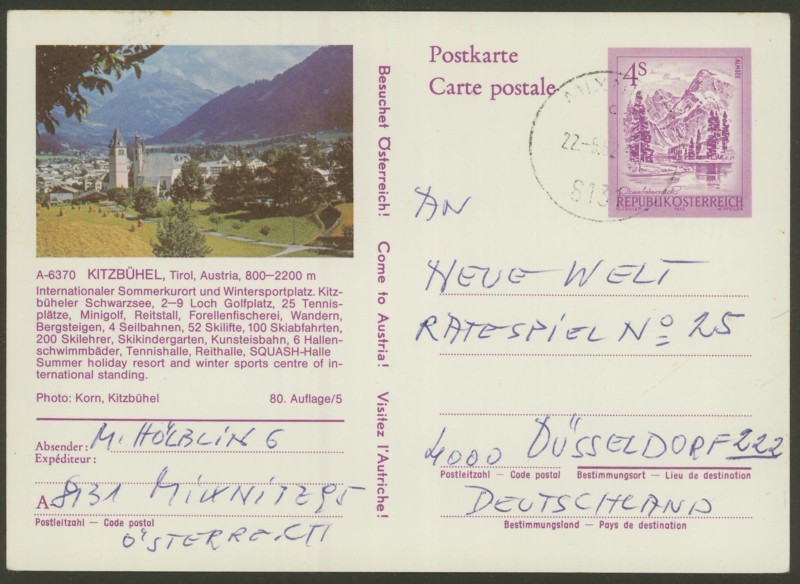 Postkarte
Carte postale
4S
ALMSEE
REPUBLIK ÖSTERREICH
22.-6.82
813
A-6370 KITZBÜHEL, Tirol, Austria, 800—2200 m
Internationaler Sommerkurort und Wintersportplatz. Kitz-
büheler Schwarzsee, 2—9 Loch Golfplatz, 25 Tennis-
plätze, Minigolf, Reitstall, Forellenfischerei, Wandern,
Bergsteigen, 4 Seilbahnen, 52 Skilifte, 100 Skiabfahrten,
200 Skilehrer, Skikindergarten, Kunsteisbahn, 6 Hallen-
schwimmbäder, Tennishalle, Reithalle, SQUASH-Halle
Summer holiday resort and winter sports centre of in-
ternational standing.
Photo: Korn, Kitzbühel 80. Auflage/5
Absender: M. HÖLBLING
Expéditeur:
A- 8131 MIXNITZ 95
Postleitzahl — Code postal
ÖSTERREICH
Besuchet Österreich! Come to Austria! Visitez l'Autriche!
AN
NEUE WELT
RATESPIEL No 25
4000 DÜSSELDORF 222
Postleitzahl — Code postal Bestimmungsort — Lieu de destination
DEUTSCHLAND
Bestimmungsland — Pays de destination